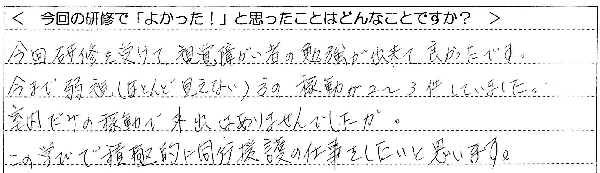 < 今回の研修で「よかった！」と思ったことはどんなことですか？ >
今回研修を受けて視覚障がい者の勉強が出来て良かったです。
今まで弱視(ほとんど見えない)方の稼動が2～3件していました。
だけの稼動で はありませんでしたが。
この学びで積極的に同行援護の仕事をしたいと思います。